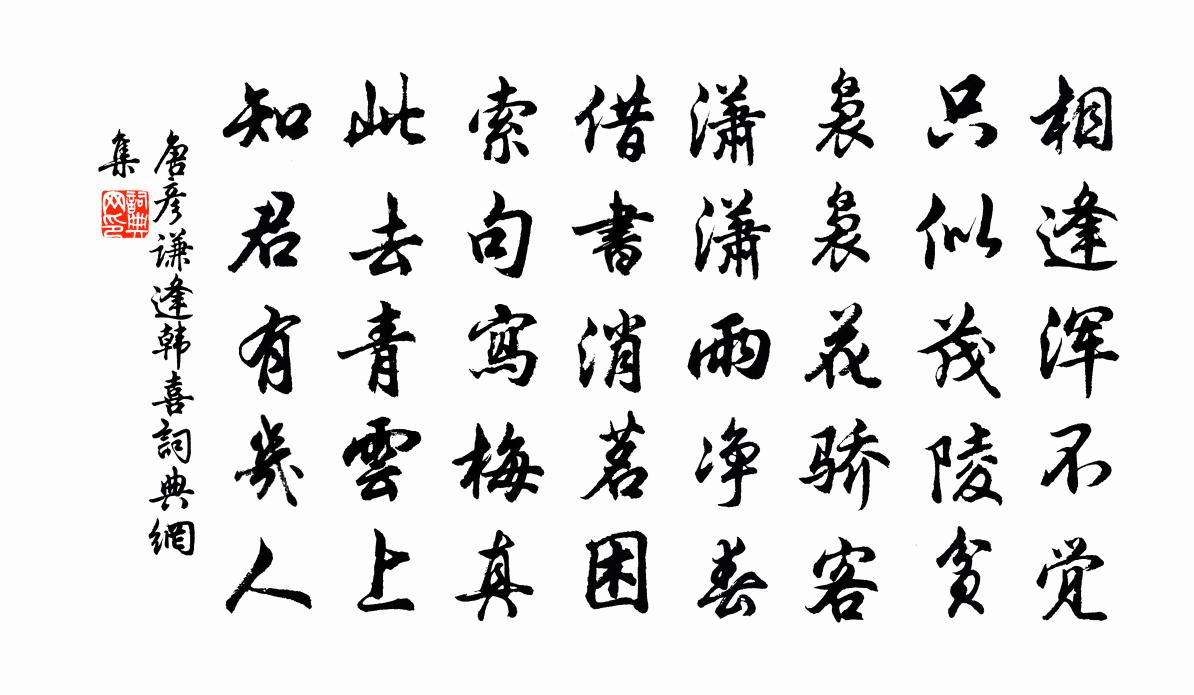 相逢浑不觉
只似茂陵贫
袅袅花骄客
潇潇雨净春
借書消茗困
索句寫梅真
此去青雲上
知君有幾人
唐彦谦逢韩喜詞典網
集
詞典
网印